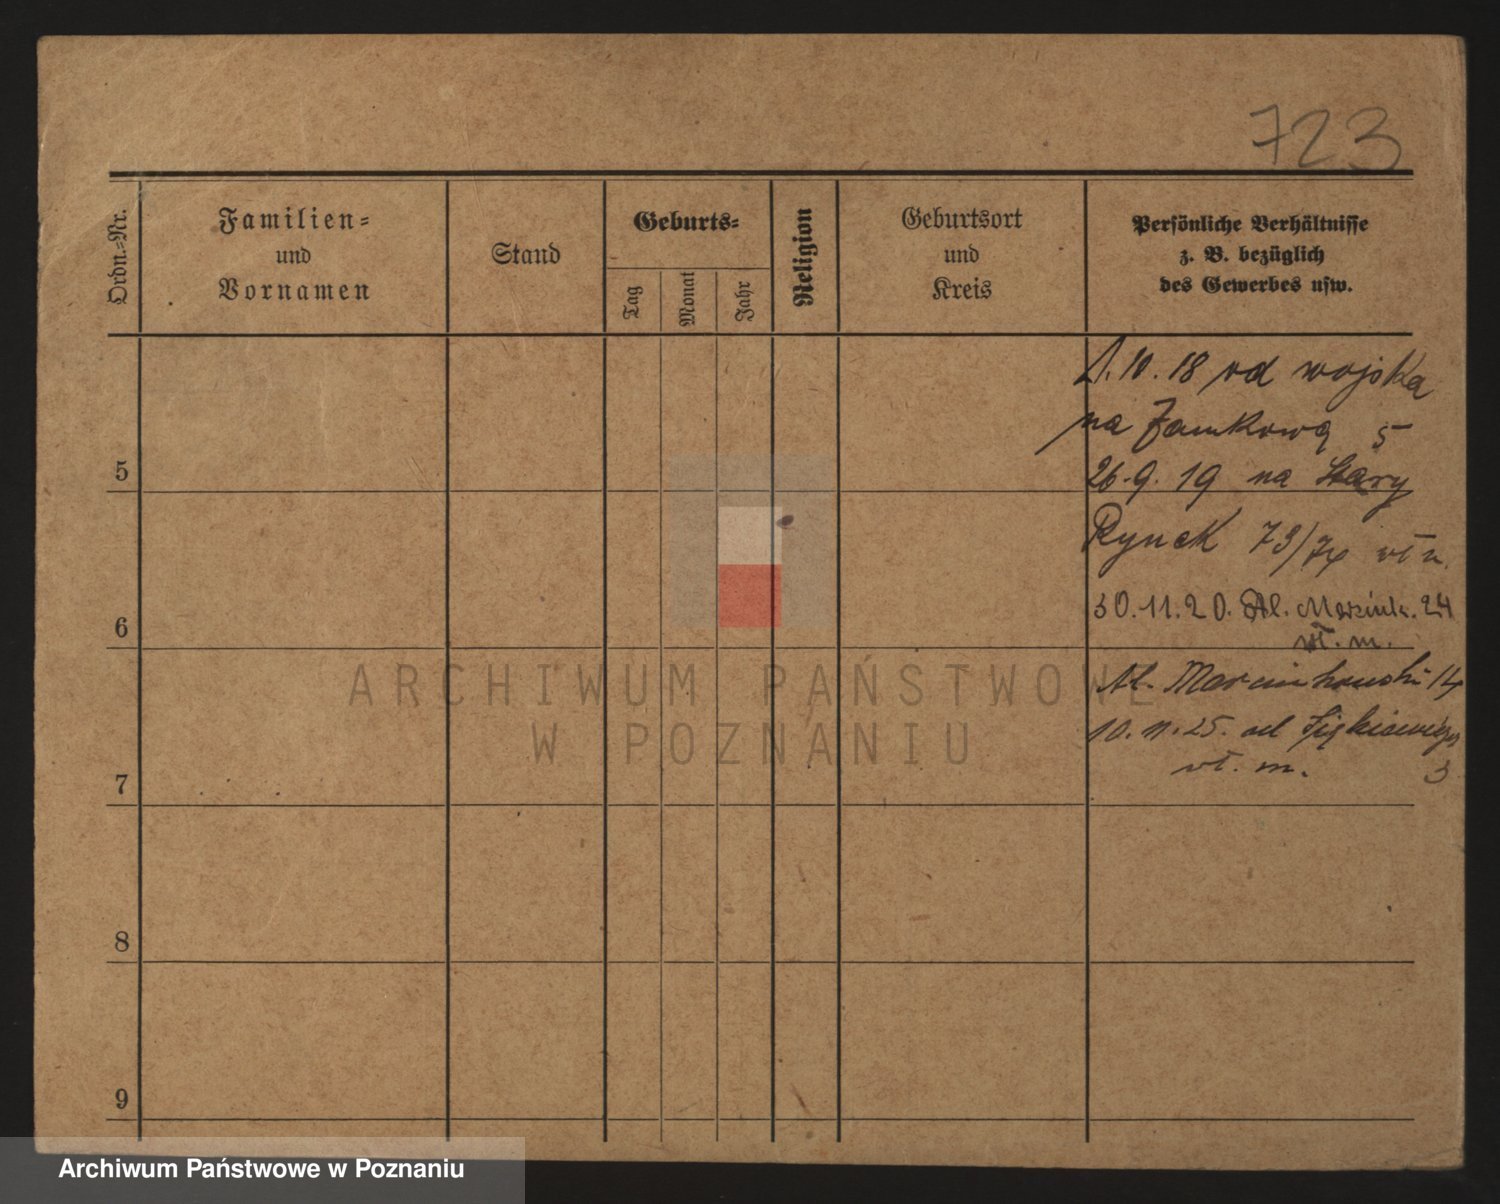 723
Ordn.-Nr.
Familien-
und
Vornamen
Stand
Geburts-
Tag
Monat
Jahr
Religion
Geburtsort
und
Kreis
Persönliche Verhältnisse
z. B. bezüglich
des Gewerbes usw.
10. 18 od wojska
na Zamkową 5
26. 9. 19 na Stary
5
Rynek 73/74 wł m.
30. 11. 20. Al. Marcink. 24
6
wł. m.
Al. Marcinkowski 14
10. 11. 25. od
wł. m. 3
7
8
9
ARCHIWUM PAŃSTWOWE
W POZNANIU
Archiwum Państwowe w Poznaniu